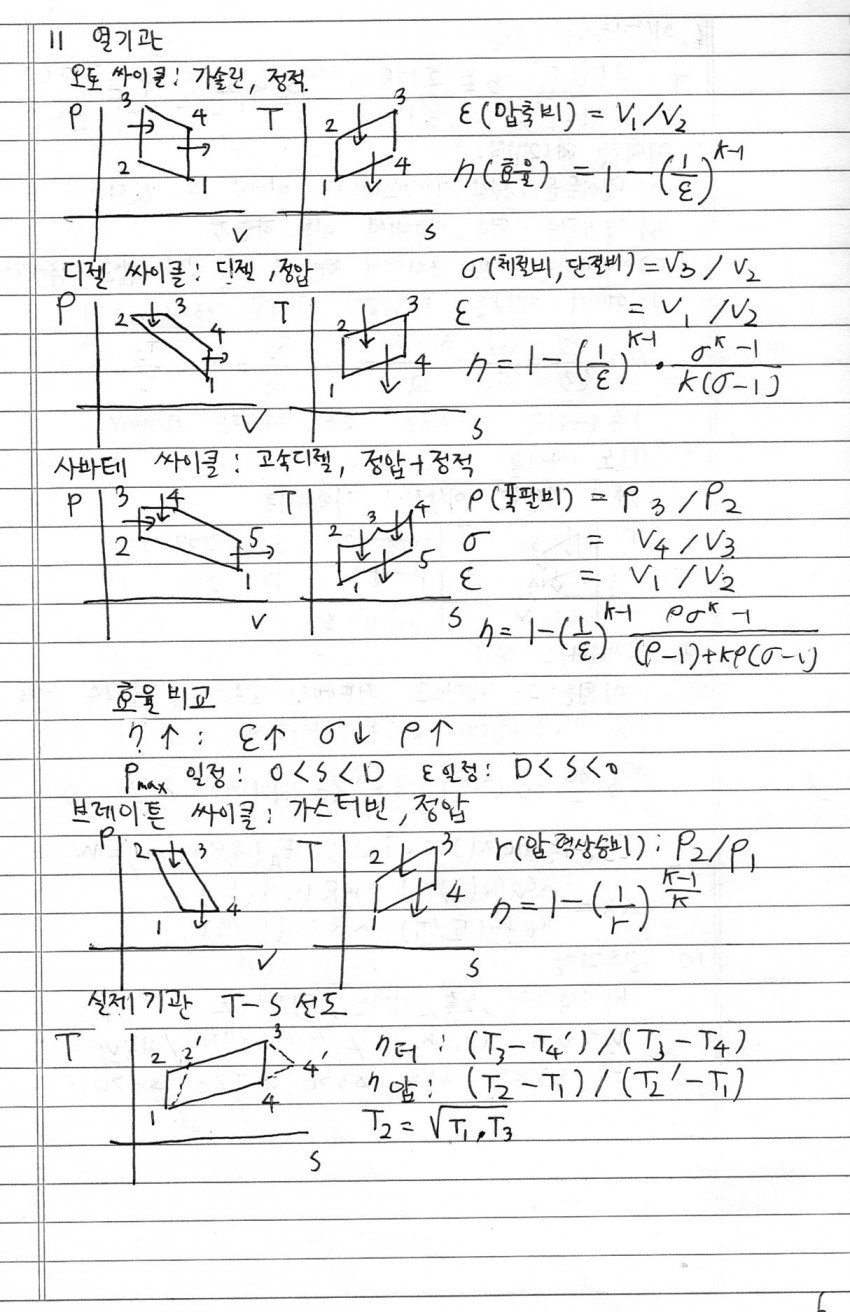 11 열기관
오토 싸이클: 가솔린, 정적
P 3 4 2 1 V
T 3 2 4 1 S
ε(압축비) = V₁/V₂
η(효율) = 1 - (1/ε)^(k-1)
디젤 싸이클: 디젤, 정압
P 2 3 4 1 V
T 3 2 4 1 S
σ(체절비, 단절비) = V₃/V₂
ε = V₁/V₂
η = 1 - (1/ε)^(k-1) · (σ^k - 1)/(k(σ-1))
사바테 싸이클: 고속디젤, 정압+정적
P 3 4 2 5 1 V
T 4 2 3 5 1 S
ρ(폭팔비) = P₃/P₂
σ = V₄/V₃
ε = V₁/V₂
η = 1 - (1/ε)^(k-1) (ρσ^k - 1)/((ρ-1)+kρ(σ-1))
효율 비교
η↑: ε↑ σ↓ ρ↑
Pmax 일정: O<S<D ε일정: D<S<O
브레이튼 싸이클: 가스터빈, 정압
P 2 3 1 4 V
T 3 2 4 1 S
r(압력상승비): P₂/P₁
η = 1 - (1/r)^((k-1)/k)
실제기관 T-S 선도
T 3 2 2' 4' 4 1 S
η터: (T₃-T₄')/(T₃-T₄)
η압: (T₂-T₁)/(T₂'-T₁)
T₂ = √(T₁·T₃)